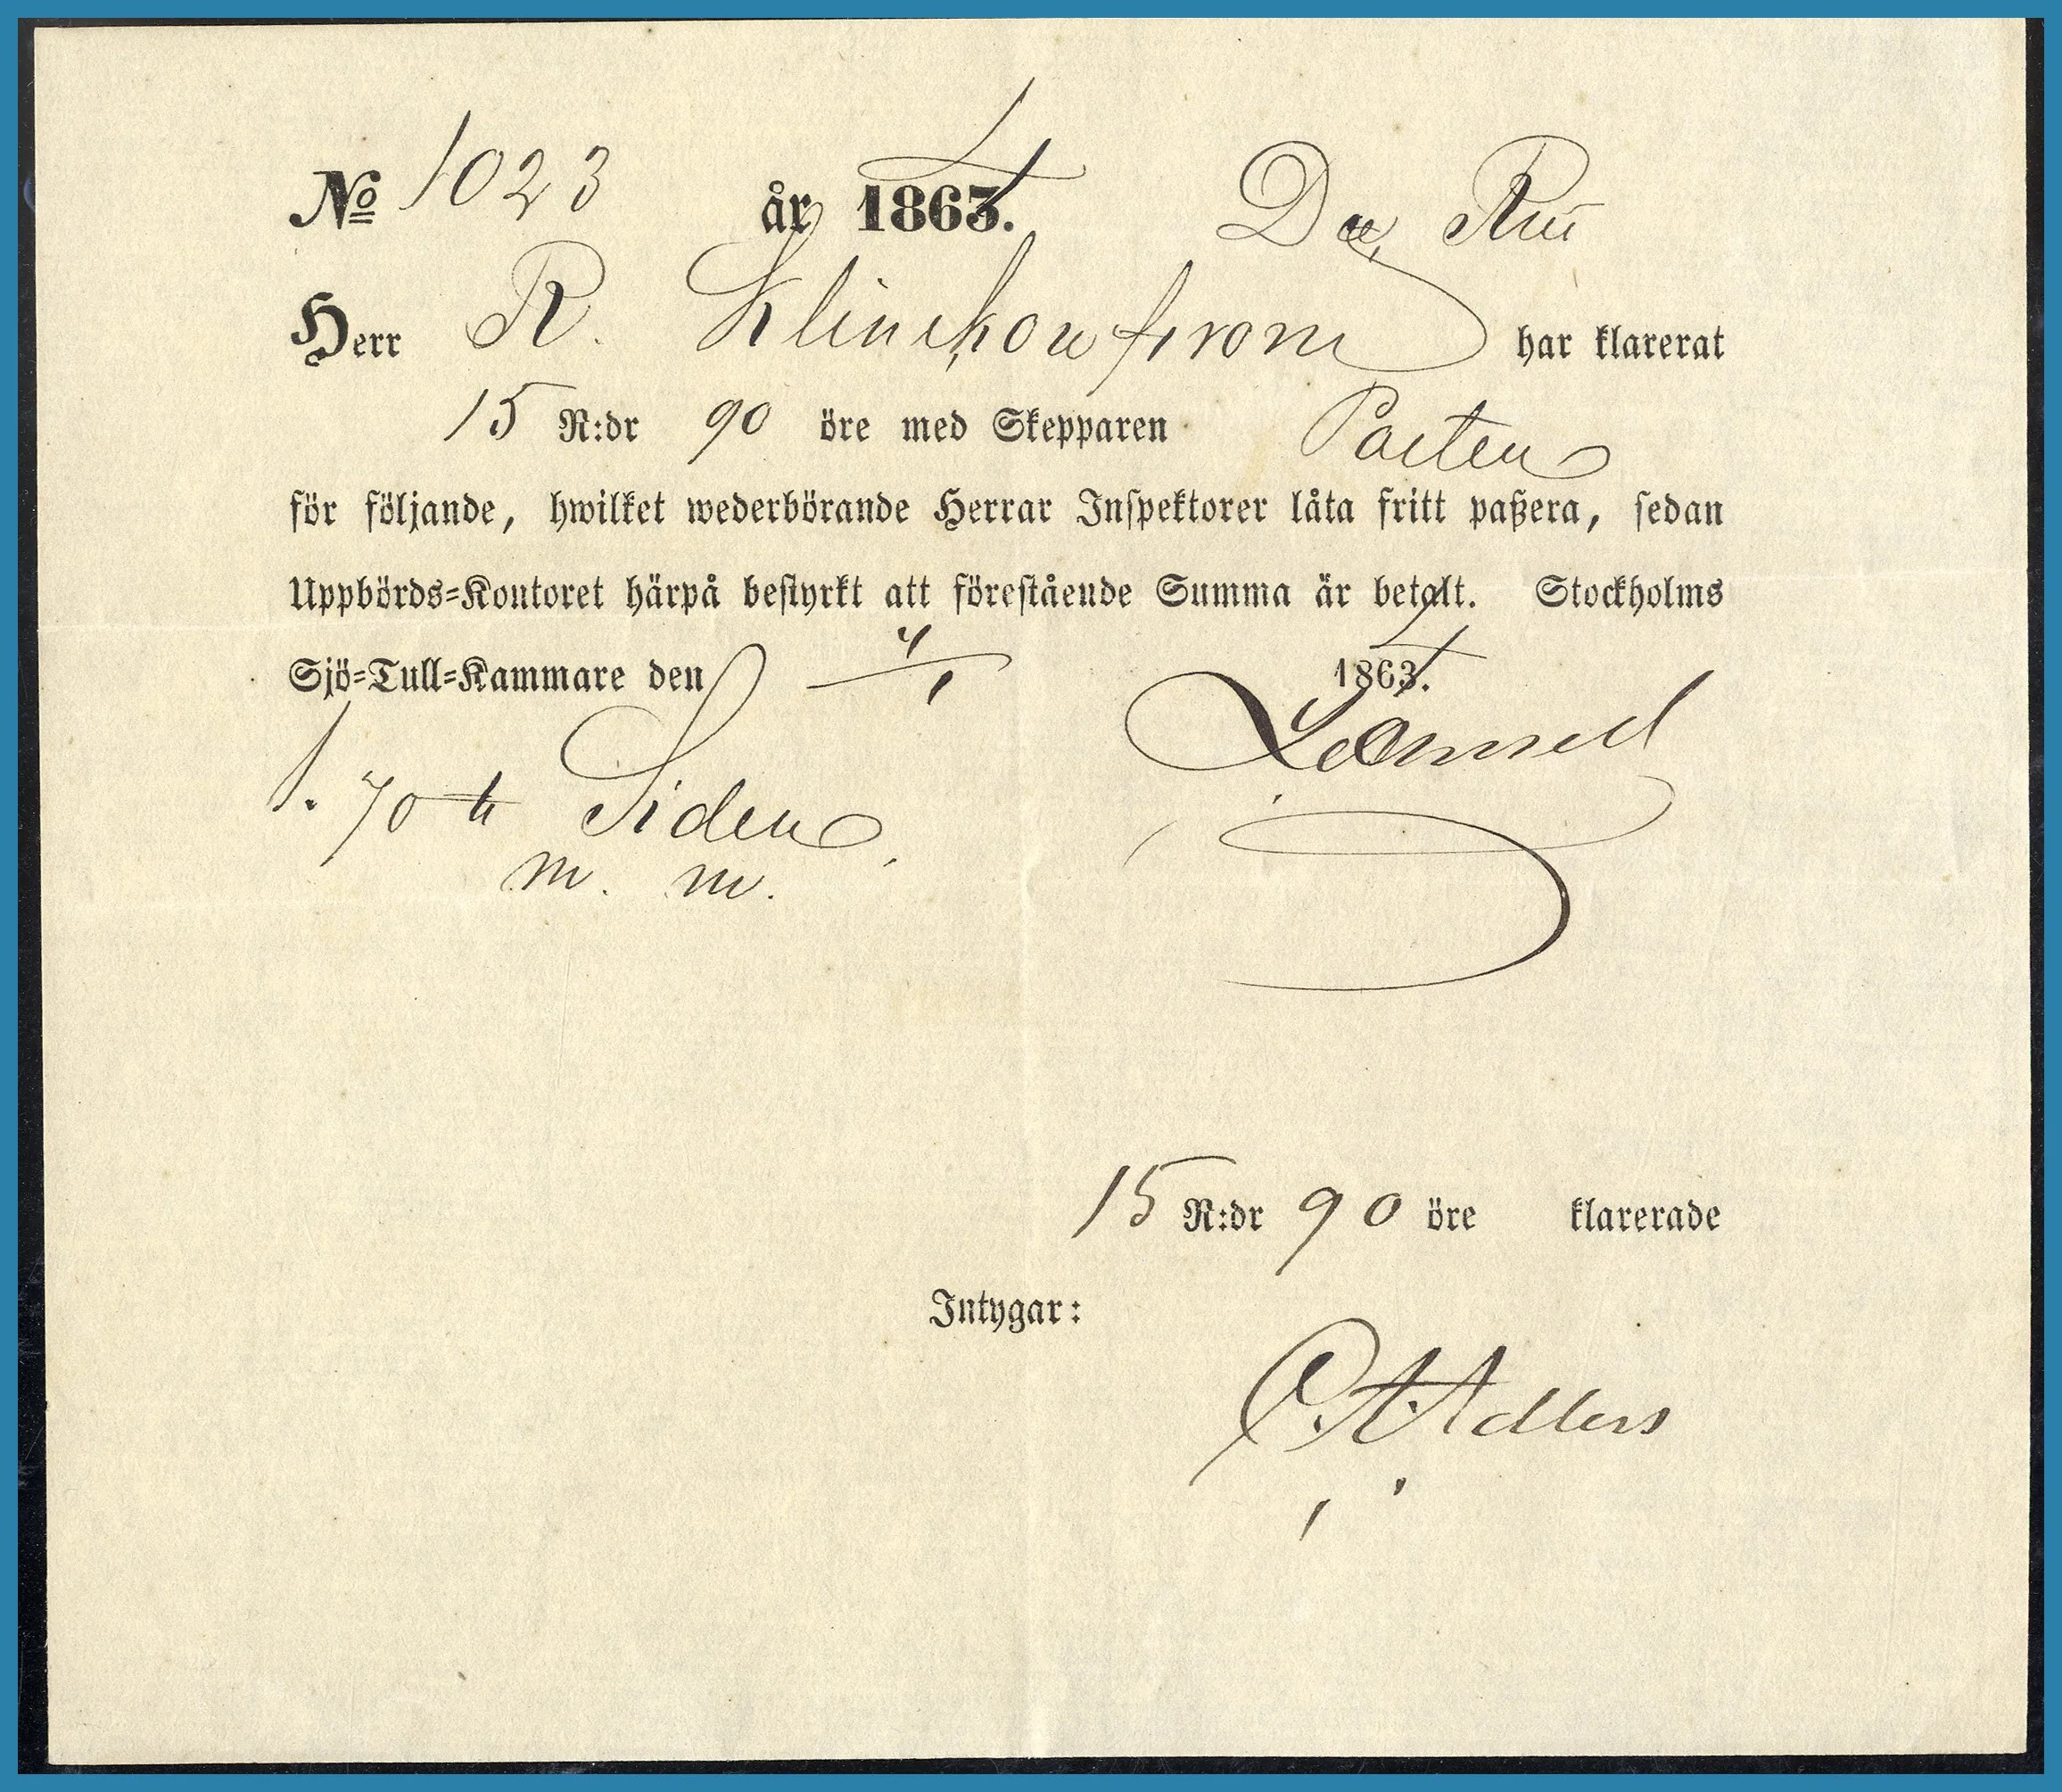 No 1023 år 1864.
Herr R. Klinckowström har klarerat
15 R:dr 90 öre med Skepparen Posten
för följande, hwilket wederbörande Herrar Inspektorer låta fritt paßera, sedan
Uppbörds-Kontoret härpå bestyrkt att förestående Summa är betalt. Stockholms
Sjö-Tull-Kammare den 4/1 1864.
1. 70 Siden
m. m.
15 R:dr 90 öre klarerade
Intygar:
Adlers